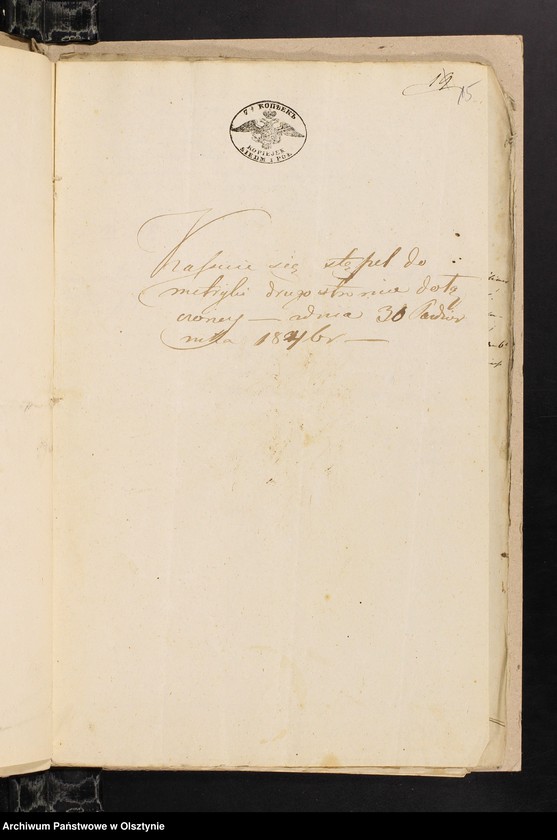 19
15
7½ КОПѢЕКЪ
KOPIEJEK
SIEDM I POŁ
Kassuie się stępel do
metryki drugostronnie dołą
czoney — dnia 30 Paździer
nika 1846 r —
Archiwum Państwowe w Olsztynie